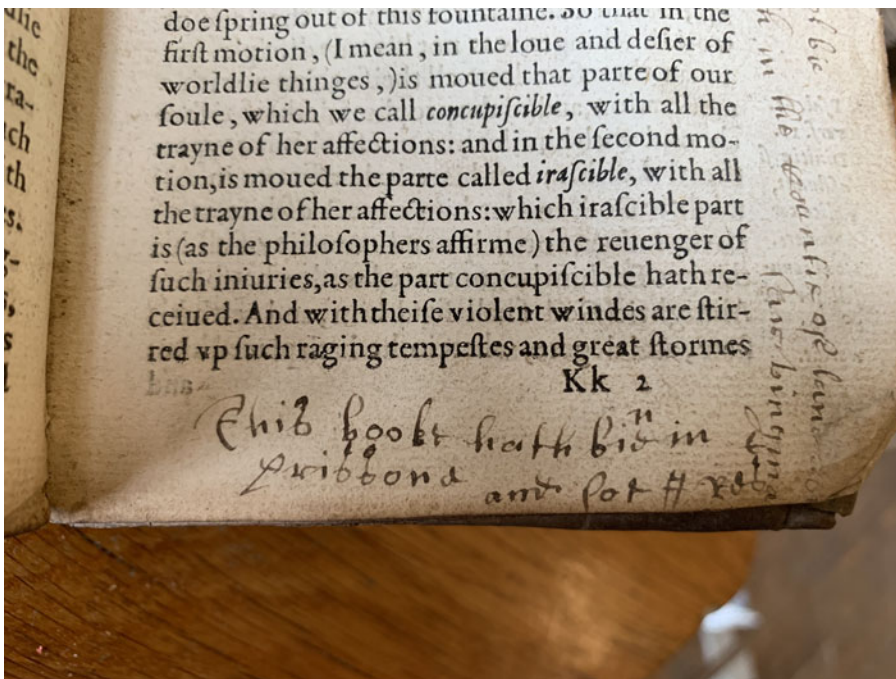 doe ſpring out of this fountaine. So that in the
firſt motion, (I mean, in the loue and deſier of
worldlie thinges,) is moued that parte of our
ſoule, which we call concupiſcible, with all the
trayne of her affections: and in the ſecond mo-
tion, is moued the parte called iraſcible, with all
the trayne of her affections: which iraſcible part
is (as the philoſophers affirme) the reuenger of
ſuch iniuries, as the part concupiſcible hath re-
ceiued. And with theiſe violent windes are ſtir-
red vp ſuch raging tempeſtes and great ſtormes
Kk 2
This booke hath bien in
and
the
ra-
ch
th
s.
in the